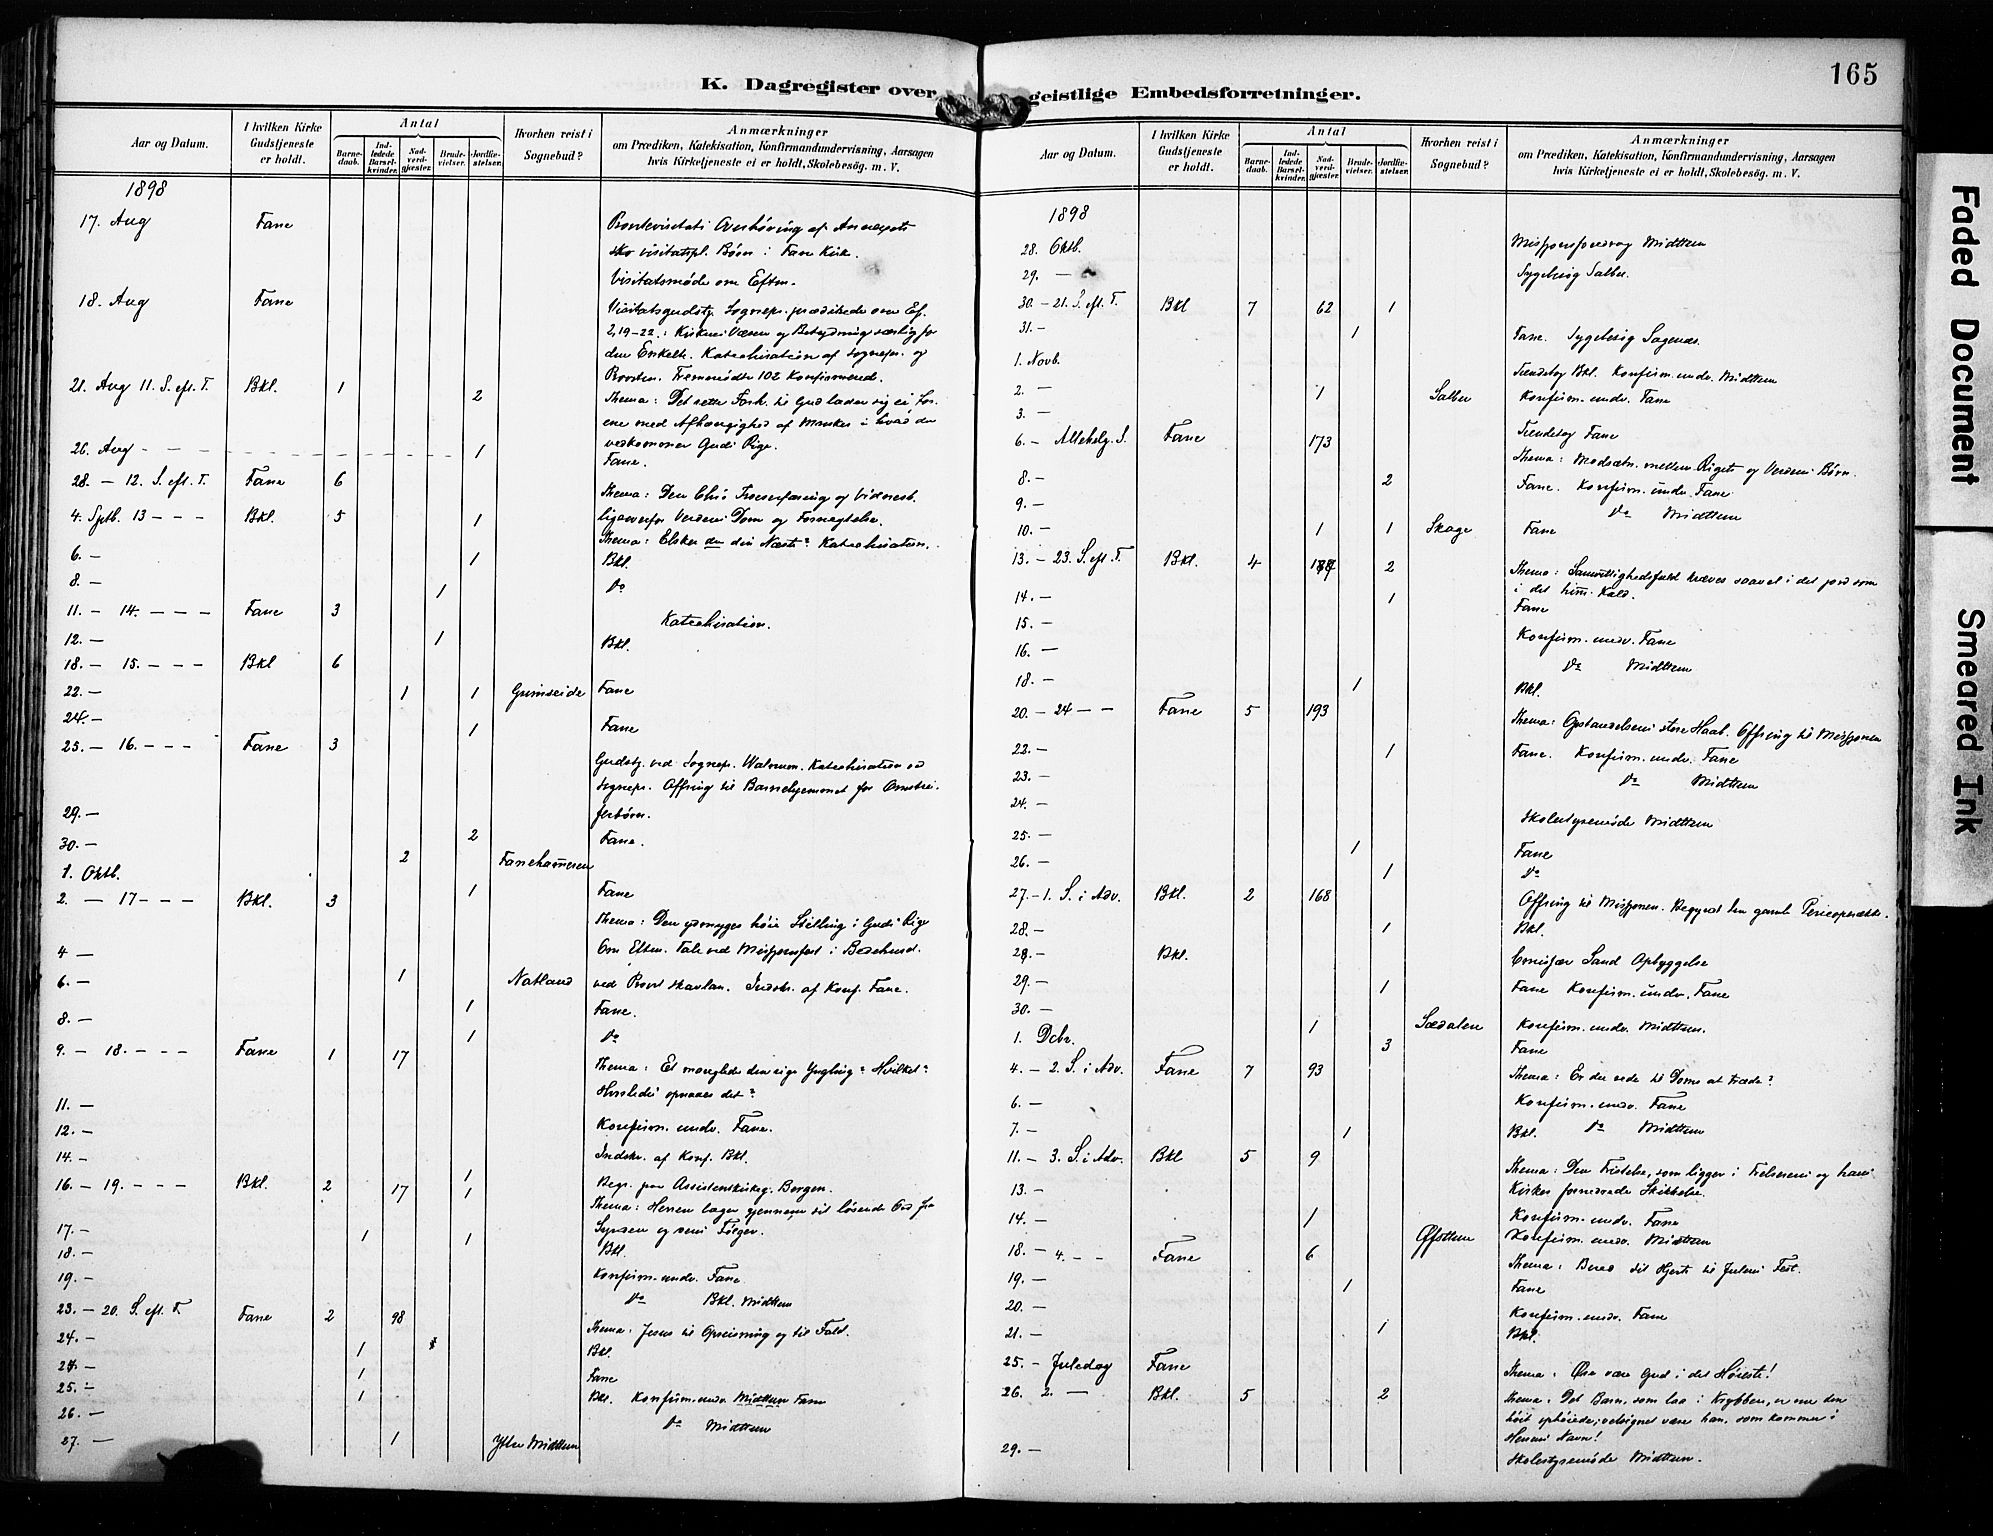 165
K. Dagregister over geistlige Embedsforretninger.
Aar og Datum.
I hvilken Kirke Gudstjeneste er holdt.
Antal
Barne-daab.
Ind-ledede Barsel-kvinder.
Nad-verd-gjæster.
Brude-vielser.
Jordfæ-stelser.
Hvorhen reist i Sognebud?
Anmærkninger
om Prædiken, Katekisation, Konfirmandundervisning, Aarsagen
hvis Kirketjeneste ei er holdt, Skolebesög. m. V.
1898
17. Aug Fane
Børn i Fane Kirke.
Visitatsmøde om Efterm.
18. Aug Fane
2,19-22: Kirkens Væsen og Betydning særlig for
den Enkelte. Katechisation af Sognepr. og
Provsten. Fremmødte 102 Konfirmerede.
21. Aug 11. S. eft. T. Bkl. 1 2
Thema: Det rette Forh. til Gud lader sig ei for-
ene med Afhængighed af Mensker i hvad der
vedkommer Guds Rige.
26. Aug 1 Fane.
28. — 12. S. eft. T. Fane 6
4. Sptb. 13 - - - Bkl. 5 1
ligeoverfor Verdens Dom og Fornegtelse.
Thema: Elsker du din Næste? Katechisation.
6. — 1 Bkl.
8. — 1 Do
11. — 14. - - - Fane 3 Katechisation.
12. — 1 Bkl.
18. — 15. - - - Bkl 6
22. — 1 1 Grimseide Fane
24. — 1 Fane
25. — 16. - - - Fane 3
Gudstj. ved Sognepr. Katechisation ved
Sognepr. Offring til Barnehjemmet for Omstrei-
ferbørn.
29. — 2 Fane.
30. — 2 Fanehammeren
1. Oktb. 1 Fane
2. — 17 - - - Bkl. 3
Thema: Den ydmyges høie Stilling i Guds Rige
Om Efterm. Tale ved Missjonsfest i Bedehuset
4 — 1 Natland
ved Provst Skavlan. Indskr. af Konf. Fane.
6. — 1 Fane.
8. — 1 Do
9. — 18. - - - Fane 1 17
Thema: Et manglede den rige Yngling? Hvilket?
Hvorledes opnaaes det?
11. — Konfirm. underv. Fane.
12. — Indskr. af Konf. Bkl.
14. — 1 Begr. paa Assistentkirkeg. Bergen.
16. — 19. - - - Bkl. 2 17 1
Thema: Herren tager gjennem sit løsende Ord fra
Synden og dens Følger.
17. — 1 1 Bkl.
18. — Konfirm. underv. Fane
19. — Do Bkl. Midttun
23. — 20. S. eft. T. Fane 2 98
Thema: Jesus til Opreisning og til Fald.
24. — 1 Bkl.
24. — 1 Fane
25. — 1 Bkl. Konfirm. underv. Midttun Fane
26. — Do Midttun
27. — 1 Ytre Midttun
Aar og Datum.
I hvilken Kirke Gudstjeneste er holdt.
Antal
Barne-daab.
Ind-ledede Barsel-kvinder.
Nad-verd-gjæster.
Brude-vielser.
Jordfæ-stelser.
Hvorhen reist i Sognebud?
Anmærkninger
om Prædiken, Katekisation, Konfirmandundervisning, Aarsagen
hvis Kirketjeneste ei er holdt, Skolebesög. m. V.
1898
28. Oktb. Missjonsforedrag Midttun
29. — Sygebesøg Salbu.
30. — 21. S. eft. T. Bkl 7 62 1
31. — 1 Fane. Sygebesøg
1. Novb. Bkl. Konfirm. underv. Midttun
2. — 1 Salbu Konfirm. underv. Fane
3. — Fane
6. — Allehelg. S. Fane 173
Thema: Modsætn. mellem Rigets og Verdens Børn.
8. — 2 Fane. Konfirm. underv. Fane
9. — Do Midttun
10. — 1 1 Skage Fane
13. — 23. S. eft. T. Bkl. 4 2
Thema: Samvittighedsfuldt kræves saavel i det jord som
i det him. Kald.
14. — 1 Fane
15. — Konfirm. underv. Fane
16. — Do Midttun
18. — 1 Bkl.
20. — 24 — — Fane 5 193
Thema: Opstandelsens store Haab. Offring til Missjonen
22. — 1 Fane. Konfirm. underv. Fane
23. — Do Midttun
24. — Skolestyremøde Midttun
25. — 1 Fane
26. — 1 Do
27. — 1. S. i Adv. Bkl. 2 168
Offring til Missjonen. Begyndt den gamle Pericoperække.
28. — 1 Bkl.
28. — Bkl. Emissær Sand Opbyggelse
29. — 1 Fane Konfirm. underv. Fane
30. — 1 Sædalen Konfirm. underv. Midttun.
1. Debr. 3 Fane
4. — 2. S. i Adv. Fane 7 93
Thema: Er du rede til Doms at træde?
6. — Konfirm. underv. Fane
7. — 1 Bkl. Do Midttun
11. — 3. S. i Adv. Bkl 5 9
Thema: Den Fristelse, som ligger i Frelserens og hans
Kirkes fornedrede Skikkelse.
13. — Konfirm. underv. Fane
14. — 1 Øfsttun Konfirm. underv. Midttun
18. — 4. — — Fane 6
Thema: Bered dit Hjerte til Julens Fest.
19. — 1 Fane
20. — Konfirm. underv. Fane
21. — 1 Bkl.
25. — Juledag Fane Thema: Ære være Gud i det Høieste!
26. 2. — Bkl. 5 2
Thema: Det Barn, som laa i Krybben, er nu den
høit ophøiede; velsignet være han, som kommer i
Herrens Navn!
29. — Skolestyremøde Midttun.
Faded Document
Smeared Ink